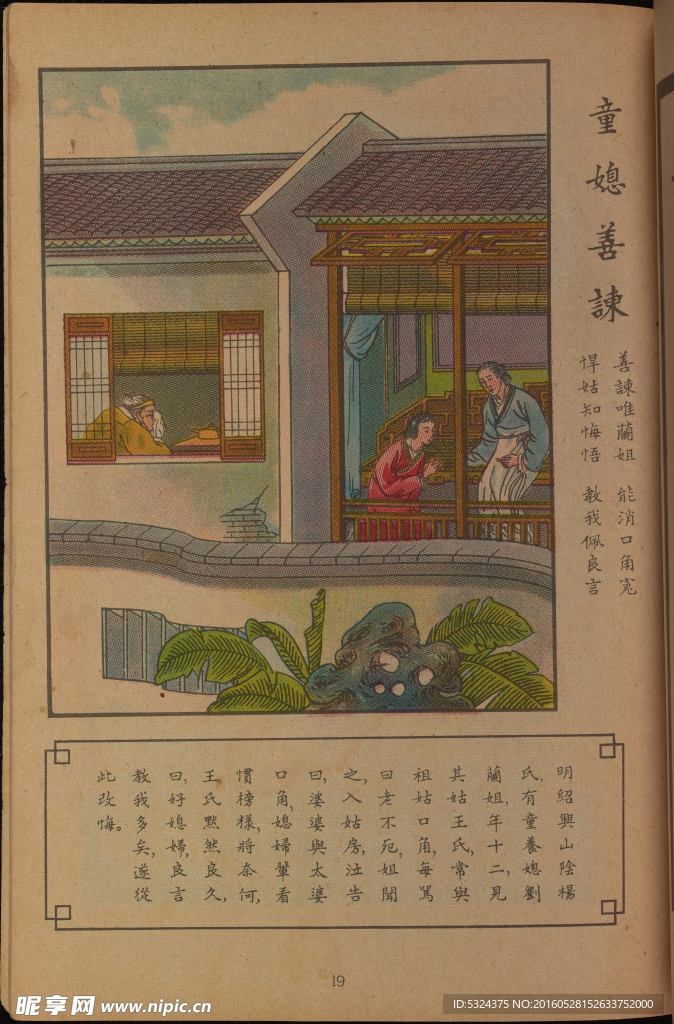 童媳善諫
善諫唯蘭姐 能消口角寃
悍姑知悔悟 教我佩良言
明紹興山陰楊
氏、有童養媳劉
蘭姐、年十二、見
其姑王氏、常與
祖姑口角、每罵
曰老不死、姐聞
之、入姑房、泣告
曰、婆婆與太婆
口角、媳婦輩看
慣榜樣、將奈何、
王氏默然良久、
曰、好媳婦、良言
教我多矣、遂從
此改悔。
19
昵享网 www.nipic.cn
ID:5324375 NO:20160528152633752000